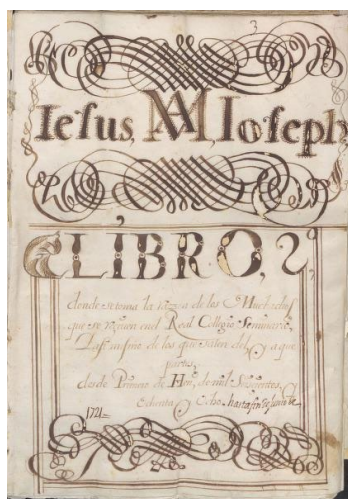 3
Iesus, MA, Ioseph
LIBRO, 2,
donde se toma la razon de los Muchachos
que se reziuen en el Real Collegio Seminario,
y assi mismo de los que salen del y a que
parte,
desde Primero de Hen.º de mil Seiscientos, y
Ochenta y Ocho hasta fin de Junio de
1721=